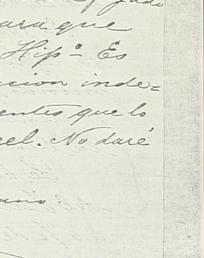 para que
Hip.º Es
cion inde=
entes que lo
cel. No daré
ano.